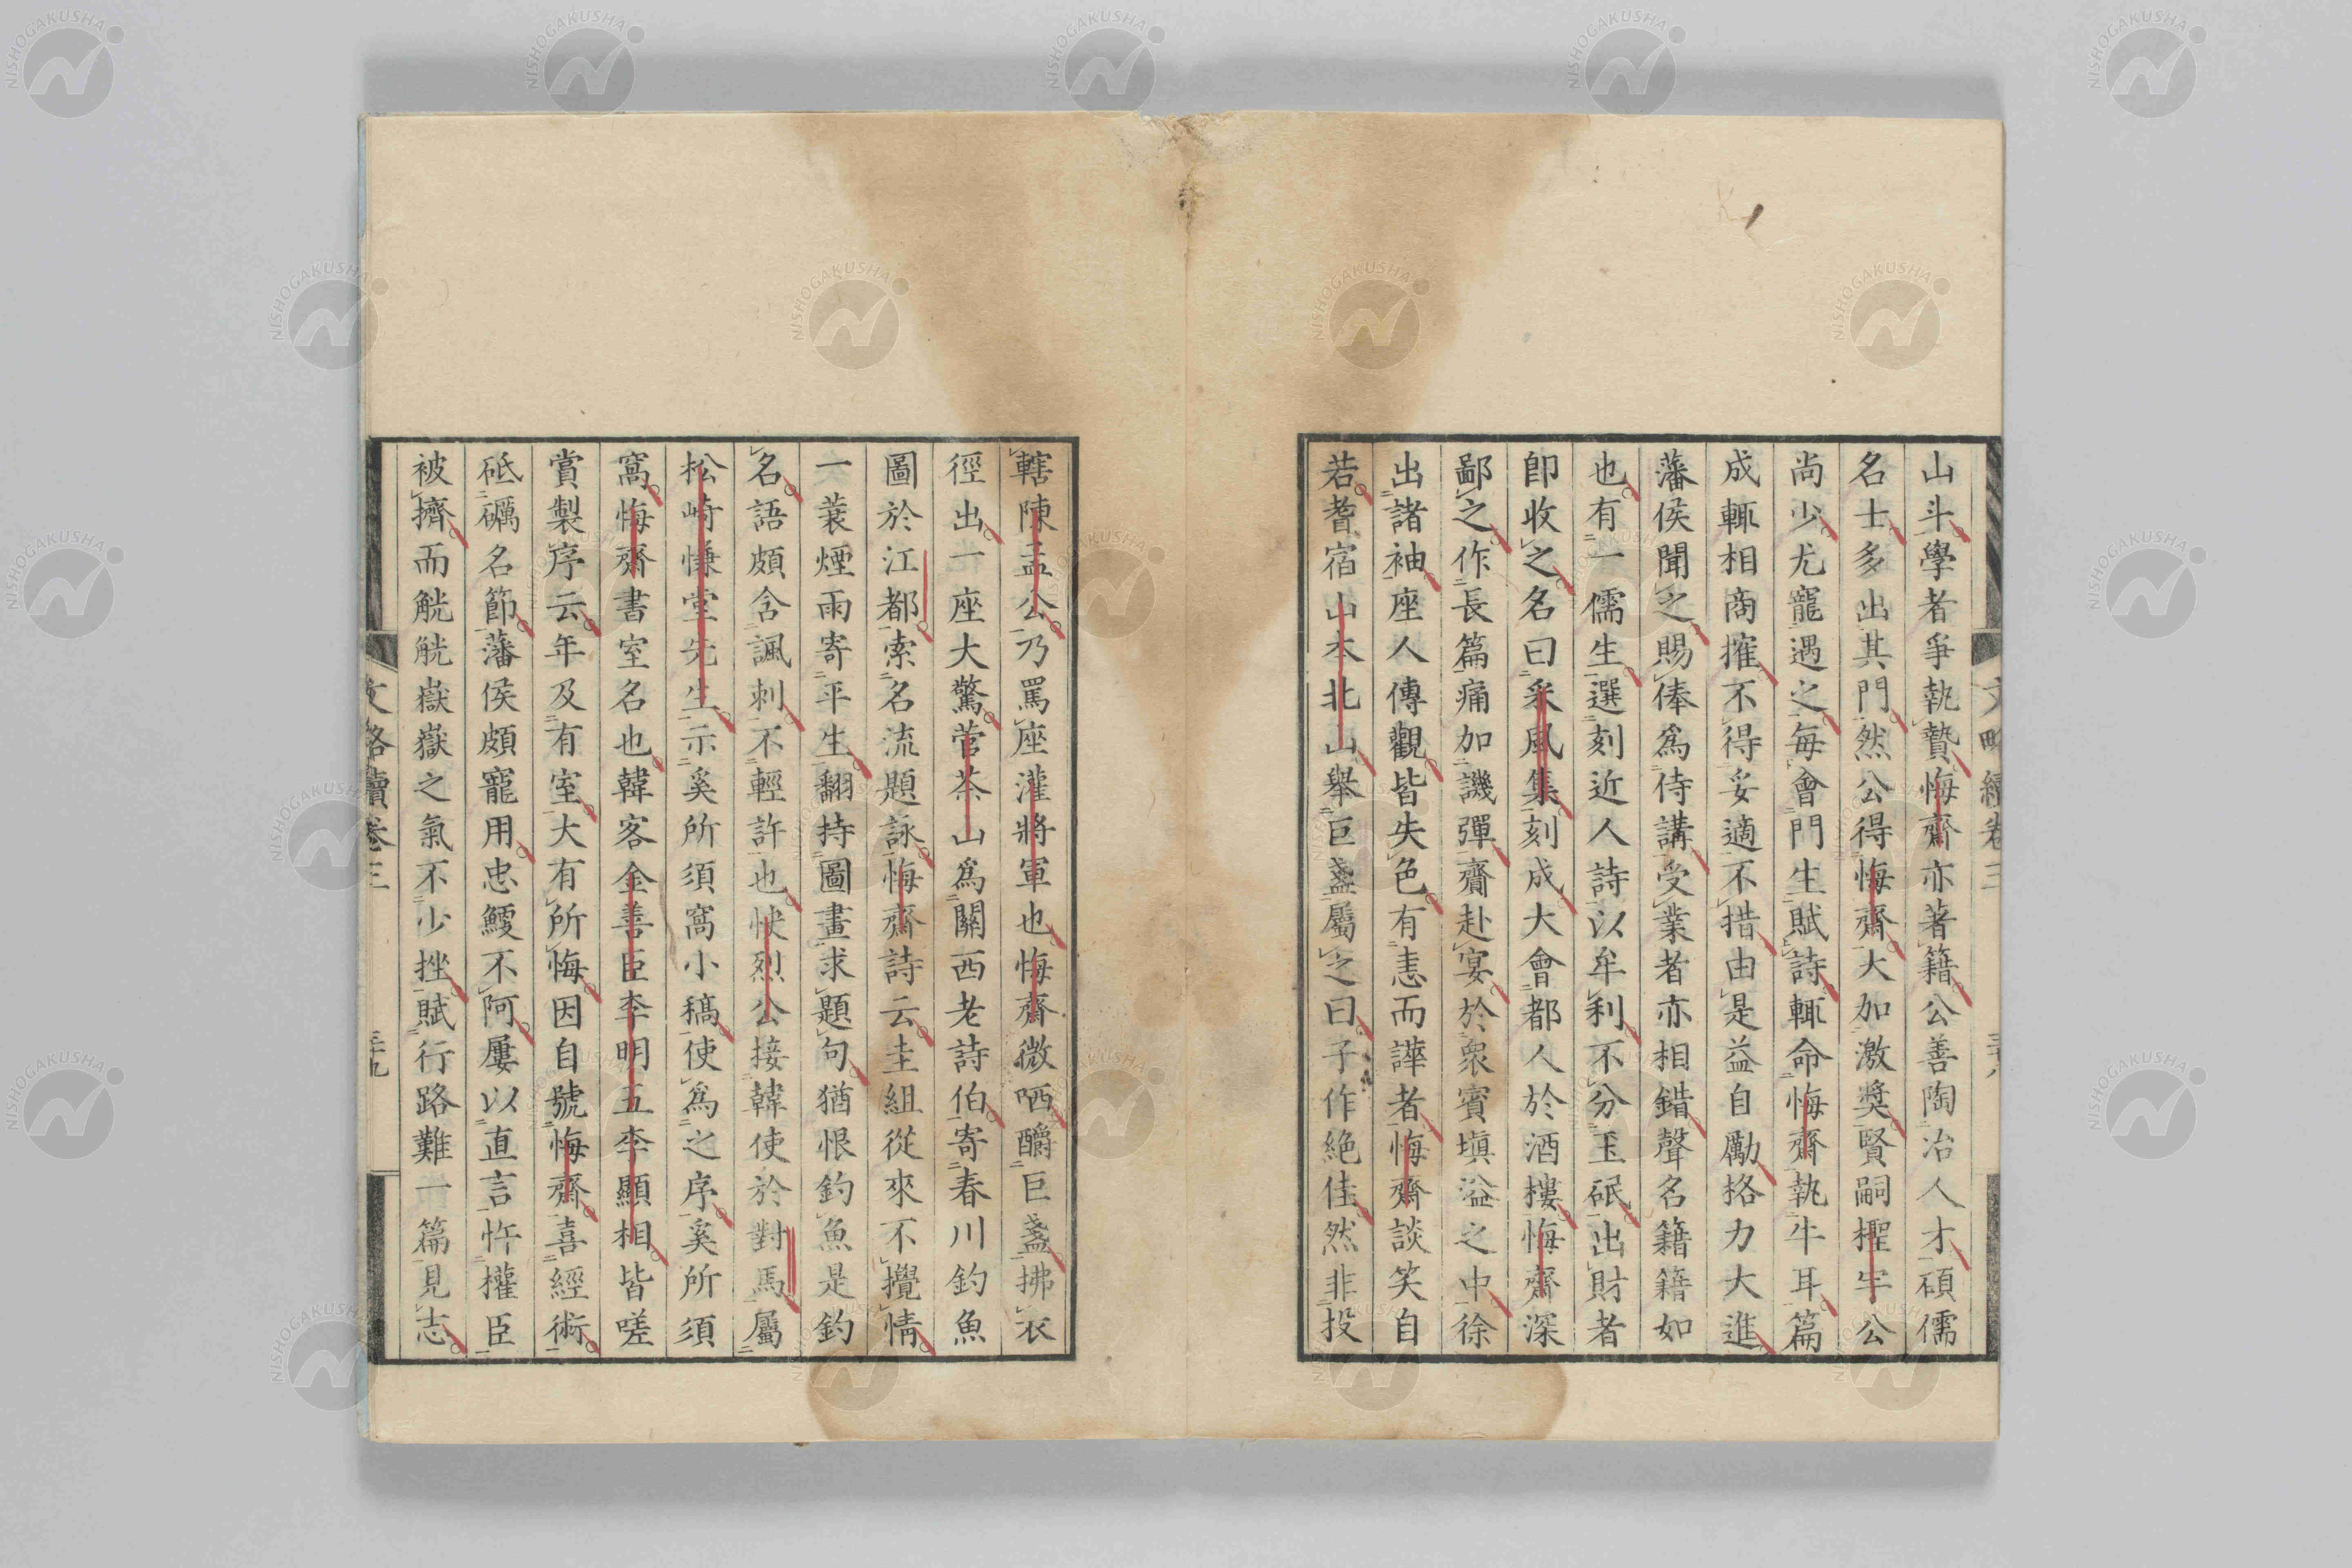 山斗學者爭執贄悔齋亦著籍公善陶冶人才碩儒
名士多出其門然公得悔齋大加激奬賢嗣檉宇公
尚少尤寵遇之每會門生賦詩輒命悔齋執牛耳篇
成輒相商搉不得妥適不措由是益自勵挌力大進
藩侯聞之賜俸爲侍講受業者亦相錯聲名籍籍如
也有一儒生選刻近人詩以牟利不分玉砥出財者
卽收之名曰采風集刻成大會都人於酒樓悔齋深
鄙之作長篇痛加譏彈齎赴宴於衆賓塡溢之中徐
出諸袖座人傳觀皆失色有恚而譁者悔齋談笑自
若耆宿山本北山舉巨盞屬之曰子作絕佳然非投
轄陳孟公乃罵座灌將軍也悔齋微哂釂巨盞拂衣
徑出一座大驚菅茶山爲關西老詩伯寄春川釣魚
圖於江都索名流題詠悔齋詩云圭組從來不攪情
一蓑煙雨寄平生翻持圖畫求題句猶恨釣魚是釣
名語頗含諷刺不輕許也快烈公接韓使於對馬屬
松崎慊堂先生示奚所須窩小稿使爲之序奚所須
窩悔齋書室名也韓客金善臣李明五李顯相皆嗟
賞製序云年及有室大有所悔因自號悔齋喜經術
砥礪名節藩侯頗寵用忠鯁不阿屢以直言忤權臣
被擠而觥觥嶽嶽之氣不少挫賦行路難一篇見志
文略續卷三
三十九
NISHOGAKUSHA